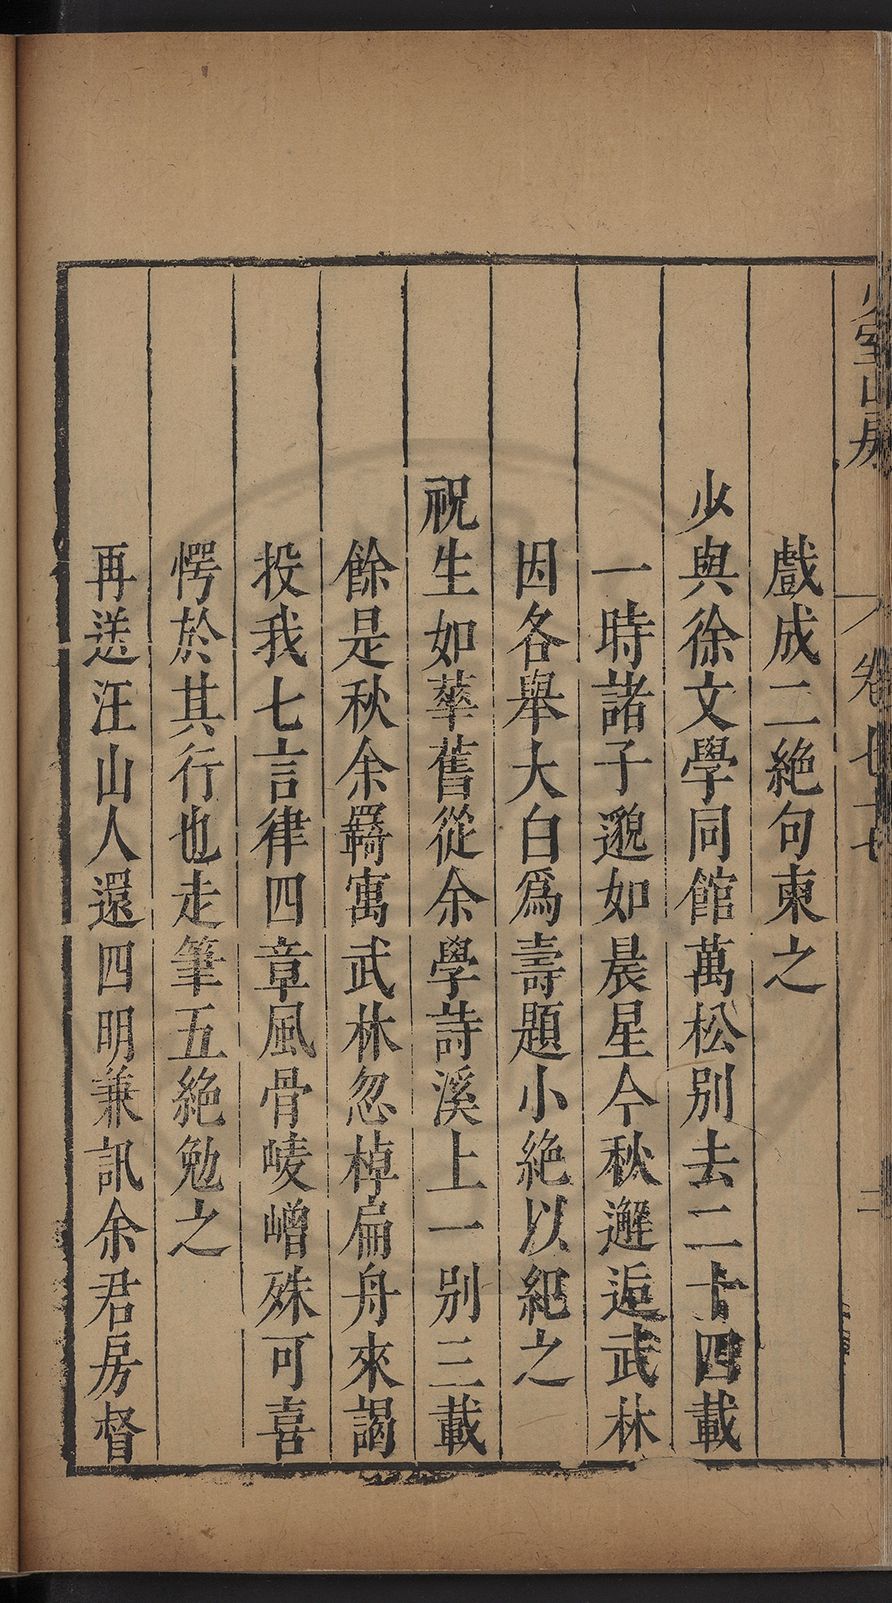 少室山房
卷七十七
二
戲成二絶句柬之
少與徐文學同館萬松别去二十四載
一時諸子邈如晨星今秋邂逅武林
因各舉大白爲壽題小絶以紀之
祝生如華舊從余學詩溪上一别三載
餘是秋余羇寓武林忽棹扁舟來謁
投我七言律四章風骨崚嶒殊可喜
愕於其行也走筆五絶勉之
再送汪山人還四明兼訊余君房督